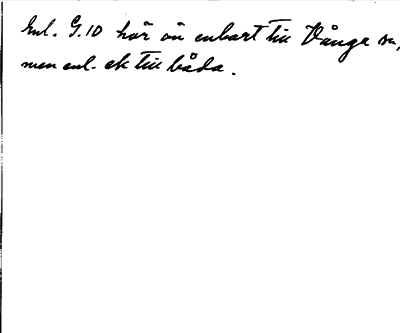 Enl. G.10 hör ön enbart till Vånga sn,
men enl. ek till båda.